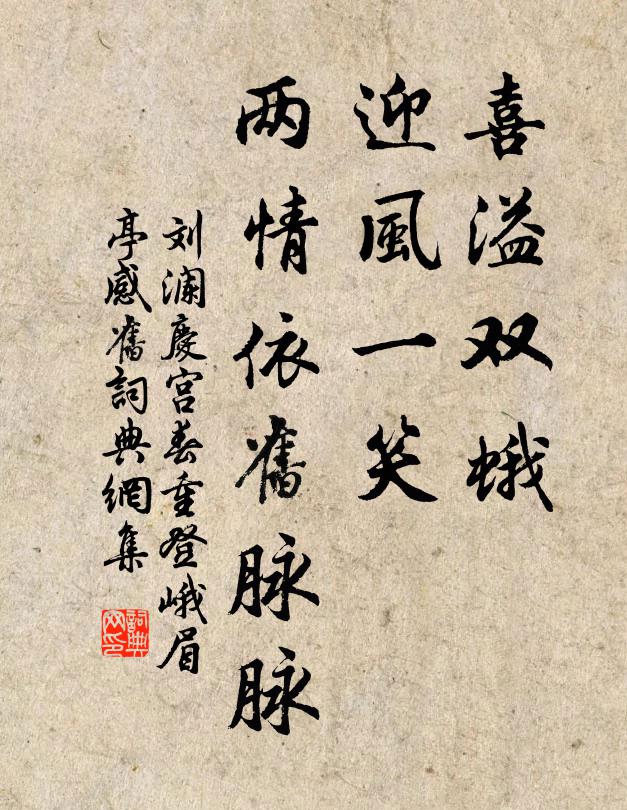 喜溢双蛾
迎風一笑
两情依舊脉脉
刘澜慶宫春重登峨眉
亭感舊詞典網集
詞典网印